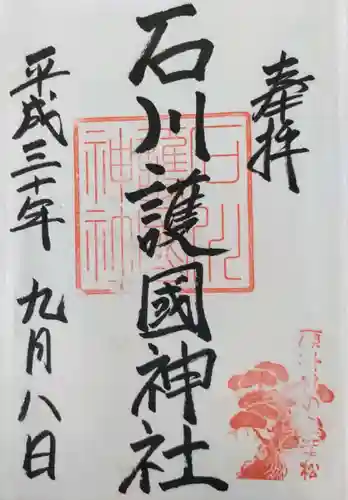 奉拝
石川護國神社
平成三十年 九月八日
松